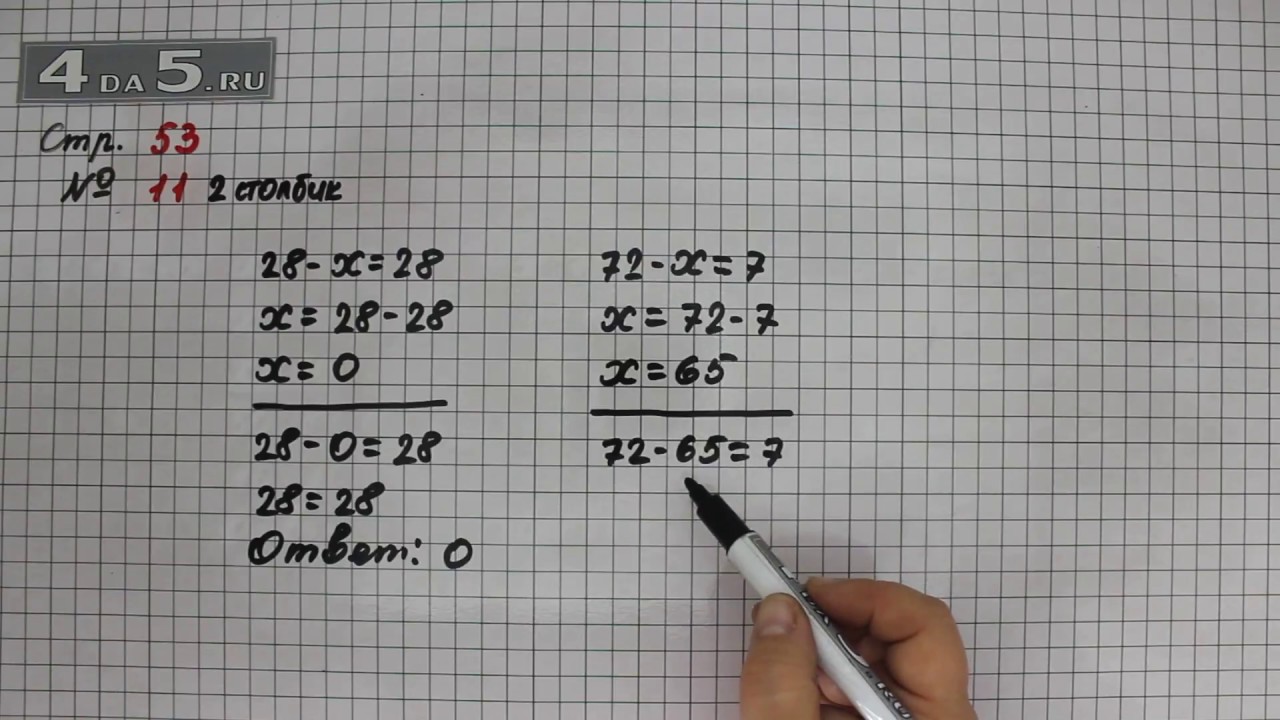 4 DA 5.RU
Стр. 53
№ 11 2 столбик
28 - x = 28
x = 28 - 28
x = 0
28 - 0 = 28
28 = 28
Ответ: 0
72 - x = 7
x = 72 - 7
x = 65
72 - 65 = 7